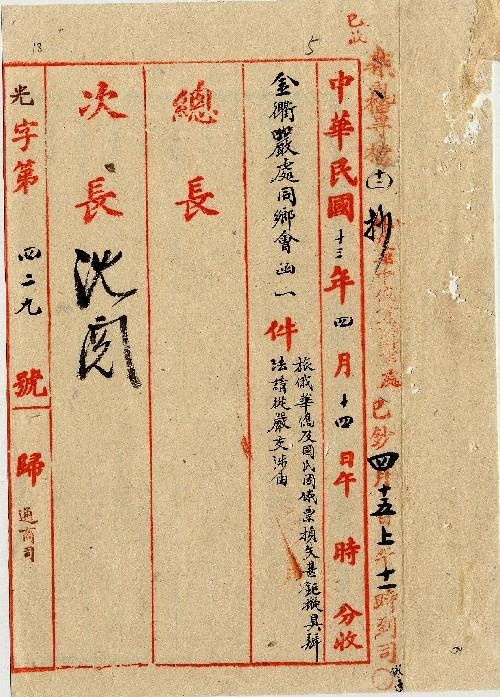 已收
抄
已鈔四月十五日上午十一時到司
中華民國十三年四月十四日午 時 分收
金衢嚴處同鄉會函一件
旅俄華僑及國民因俄票損失甚鉅擬具辦
法請從嚴交涉由
總長
次長 沈閱
光字第四二九號歸通商司
5
18